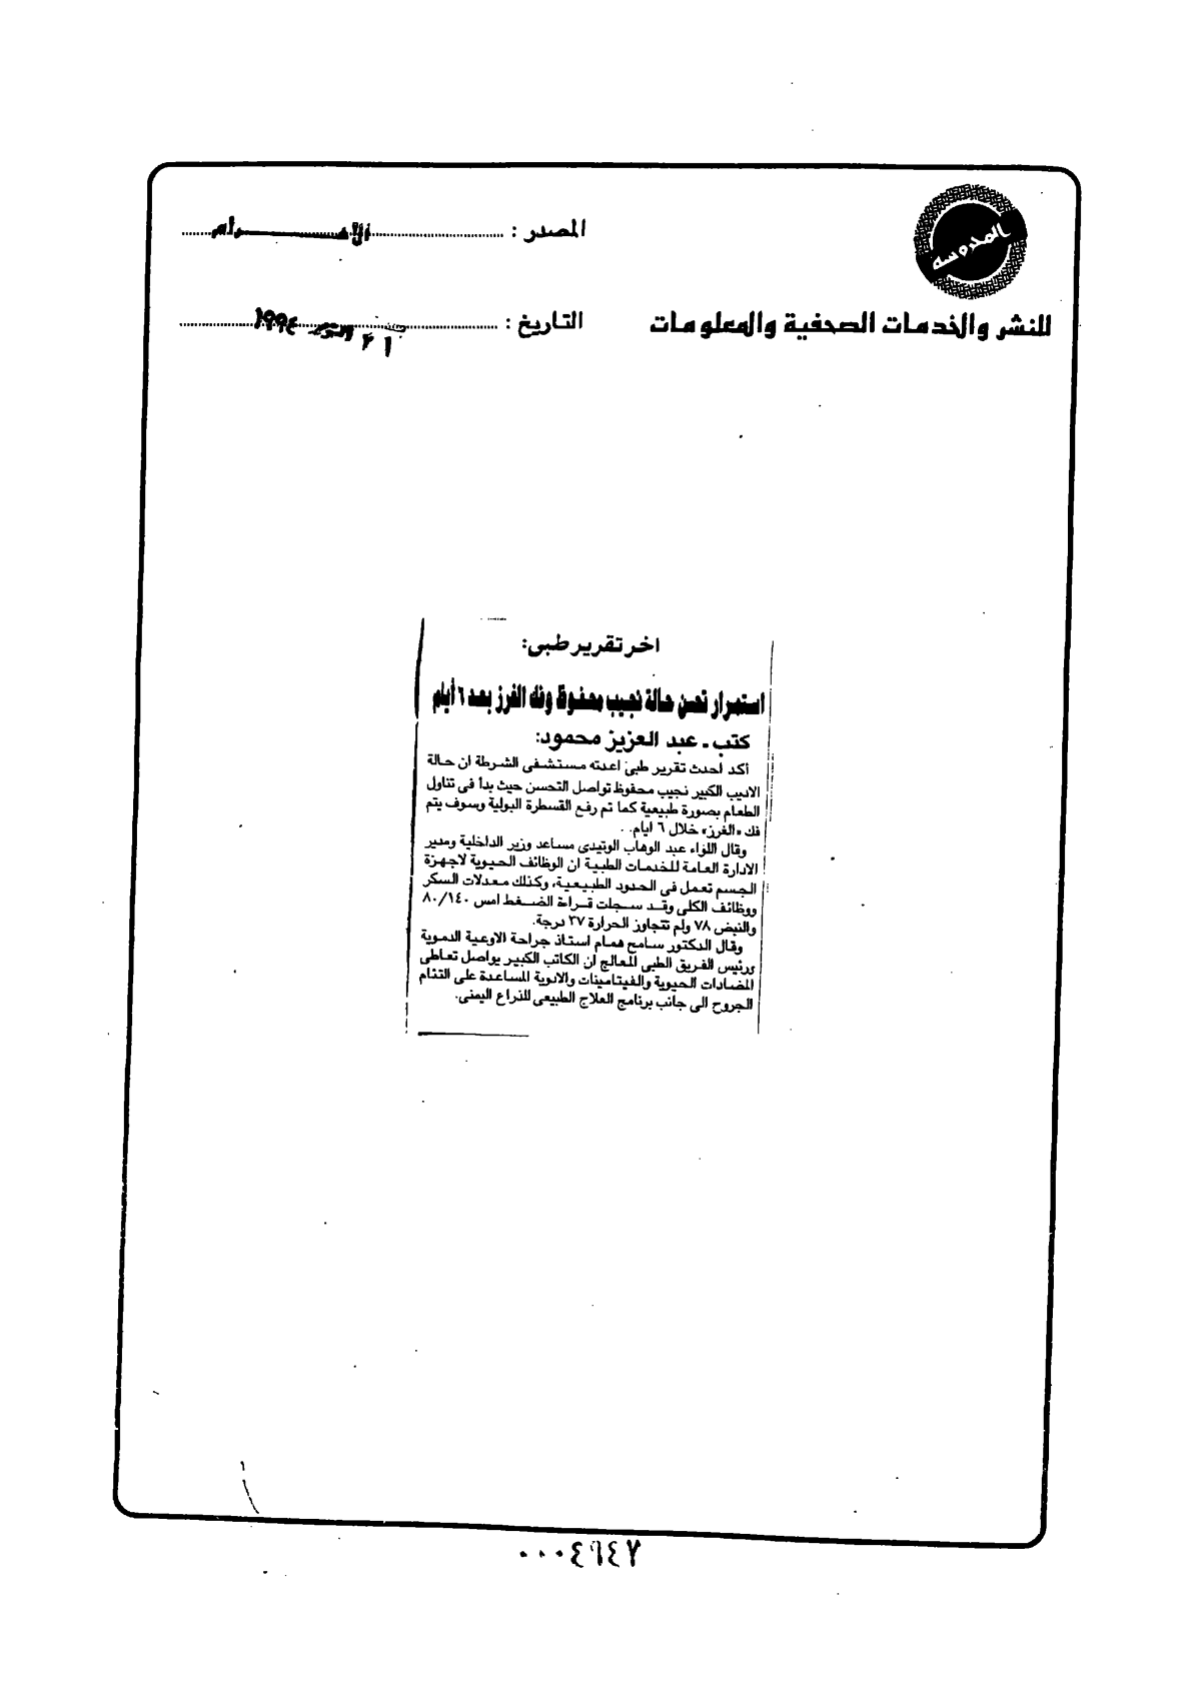 المدروسه
المصدر : الأهـــــرام
للنشر والخدمات الصحفية والمعلومات
التاريخ : ٢١ أكتوبر ١٩٩٤
اخر تقرير طبى:
استمرار تحسن حالة نجيب محفوظ وفك الغرز بعد ٦ أيام
كتب ـ عبد العزيز محمود:
أكد احدث تقرير طبى اعدته مستشفى الشرطة ان حالة
الاديب الكبير نجيب محفوظ تواصل التحسن حيث بدأ فى تناول
الطعام بصورة طبيعية كما تم رفع القسطرة البولية وسوف يتم
فك «الغرز» خلال ٦ ايام.
وقال اللواء عبد الوهاب الوتيدى مساعد وزير الداخلية ومدير
الادارة العامة للخدمات الطبية ان الوظائف الحيوية لاجهزة
الجسم تعمل فى الحدود الطبيعية، وكذلك معدلات السكر
ووظائف الكلى وقد سجلت قراءة الضغط امس ٨٠/١٤٠
والنبض ٧٨ ولم تتجاوز الحرارة ٣٧ درجة.
وقال الدكتور سامح همام استاذ جراحة الاوعية الدموية
ورئيس الفريق الطبى المعالج ان الكاتب الكبير يواصل تعاطى
المضادات الحيوية والفيتامينات والادوية المساعدة على التئام
الجروح الى جانب برنامج العلاج الطبيعى للذراع اليمنى.